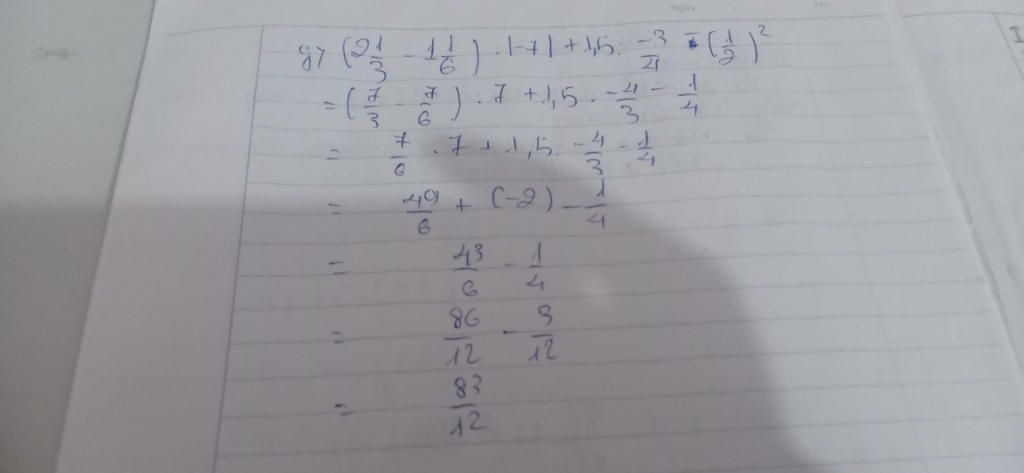 g) (2 1/3 - 1 1/6) . |-7| + 1,5 . -3/4 - (1/2)²
= (7/3 - 7/6) . 7 + 1,5 . -4/3 - 1/4
= 7/6 . 7 + 1,5 . -4/3 - 1/4
= 49/6 + (-2) - 1/4
= 43/6 - 1/4
= 86/12 - 3/12
= 83/12